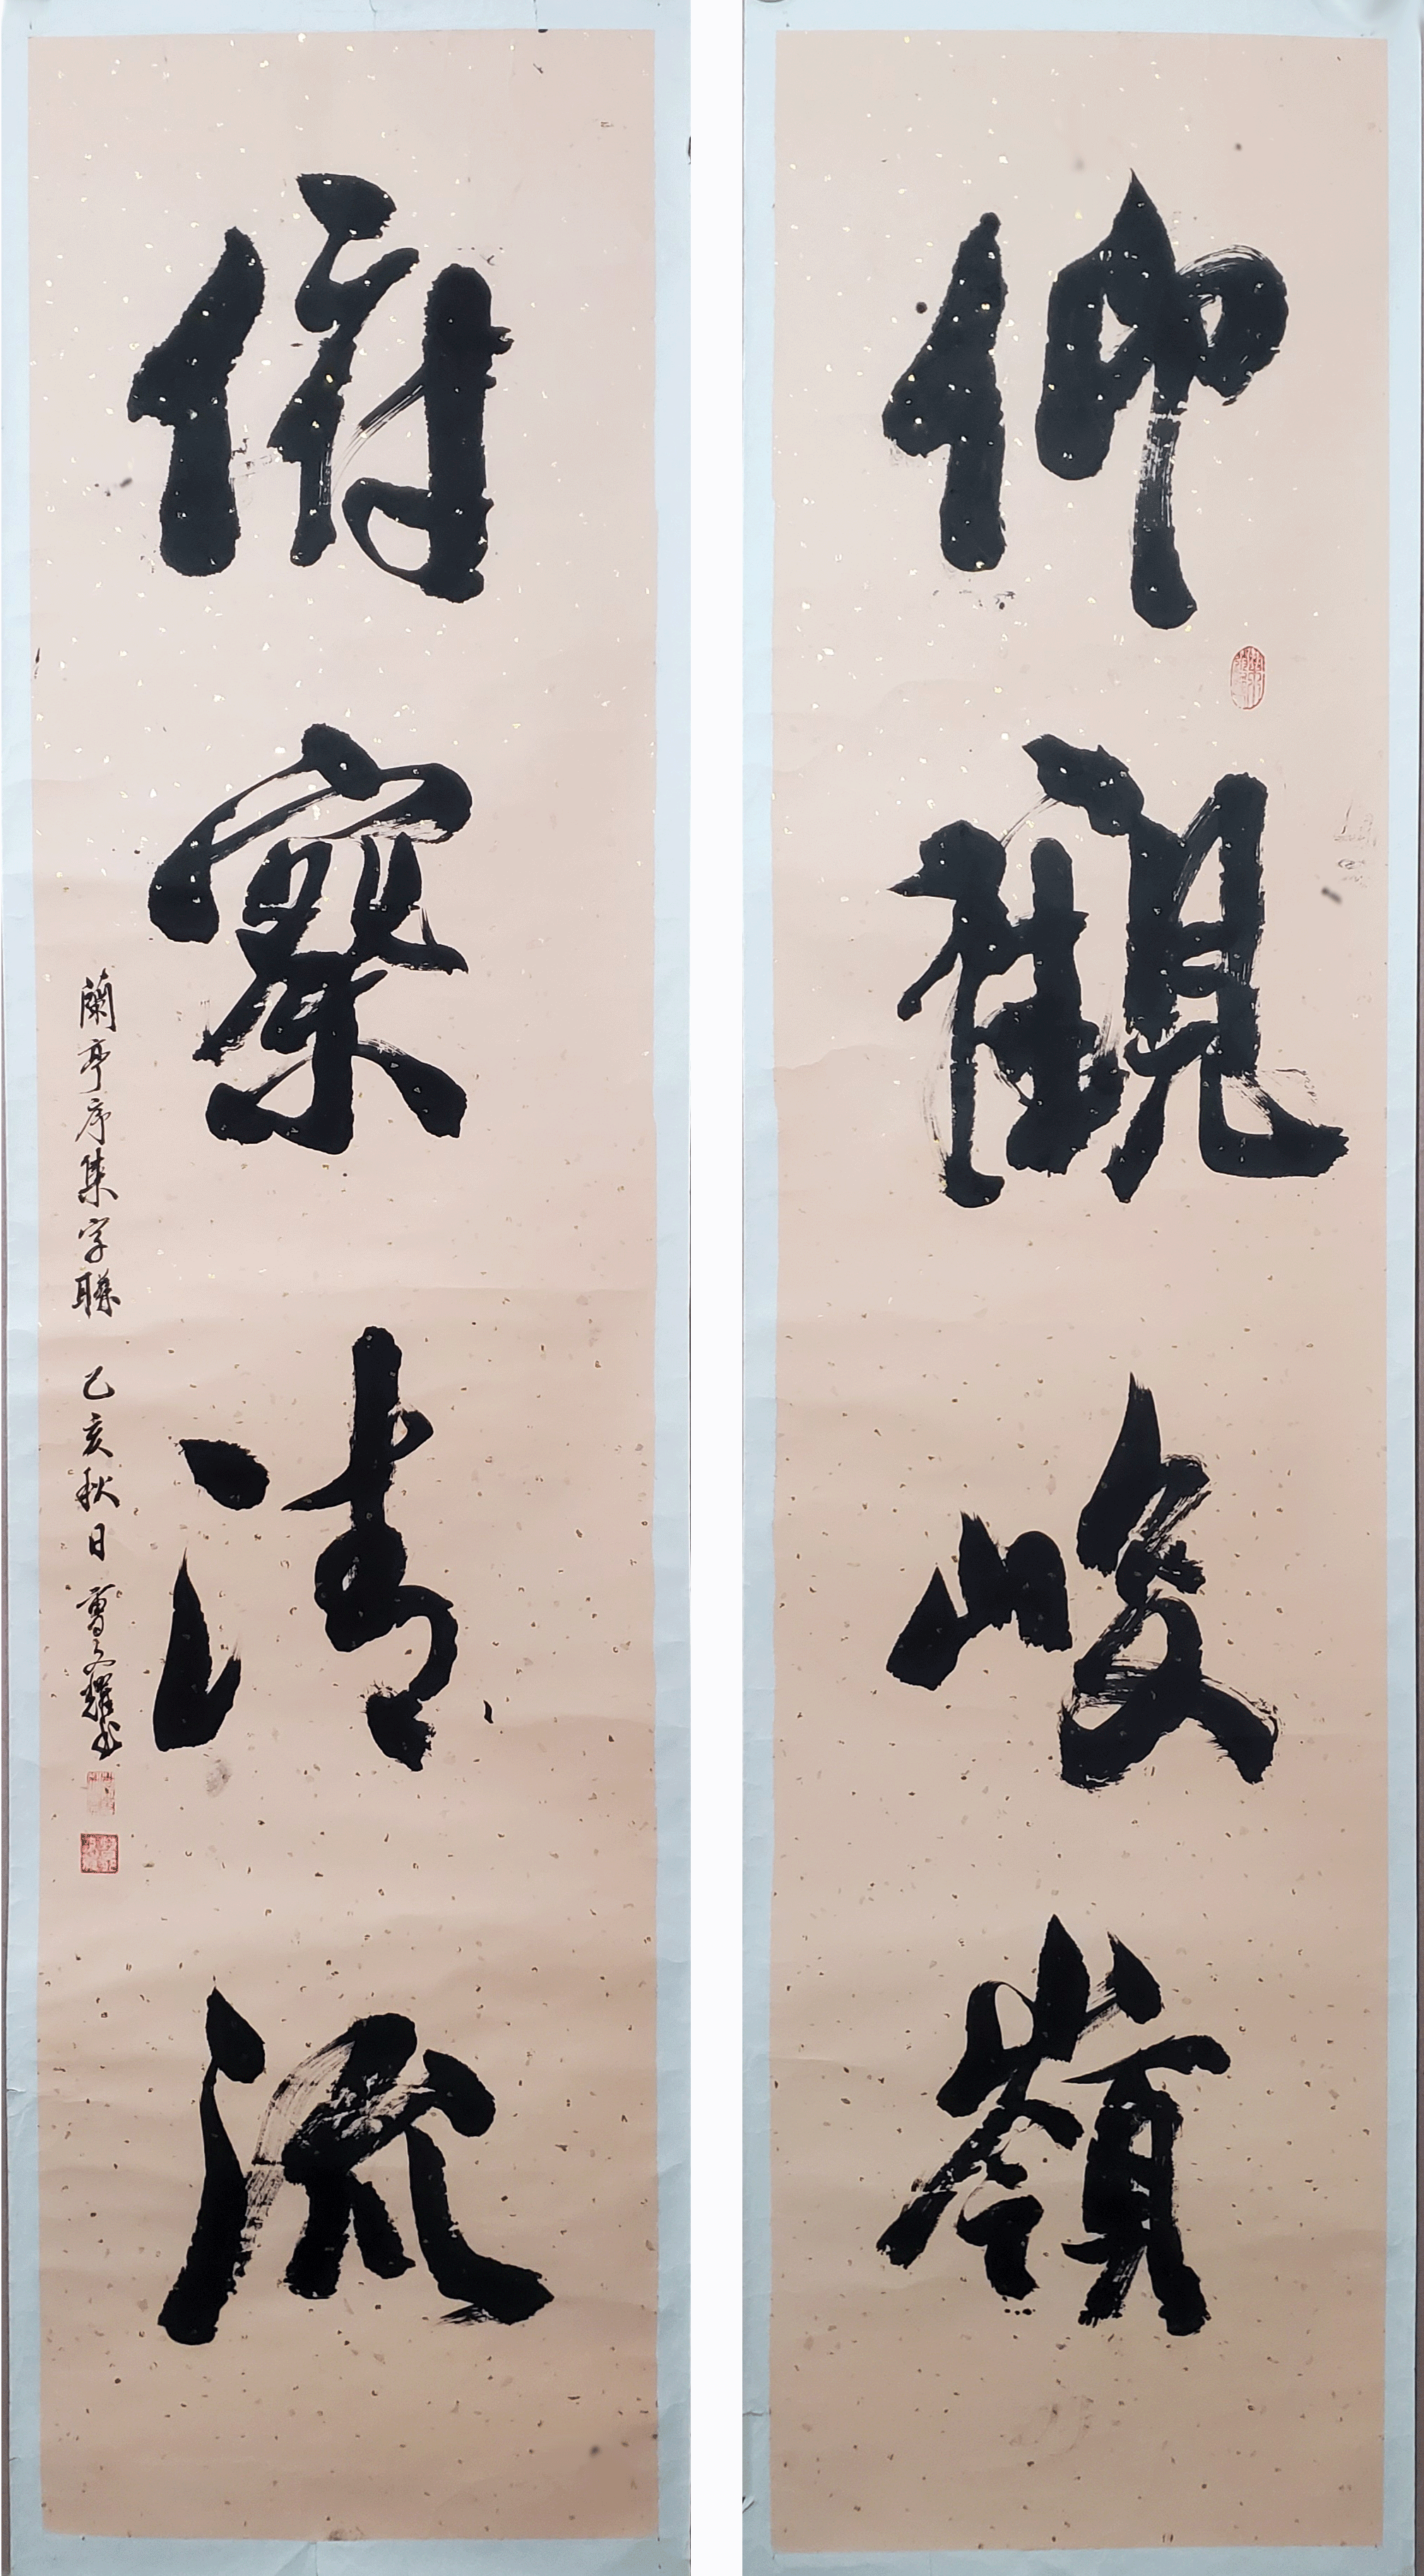 仰觀峻嶺
俯察清流
蘭亭序集字聯 己亥秋日 曾文耀書